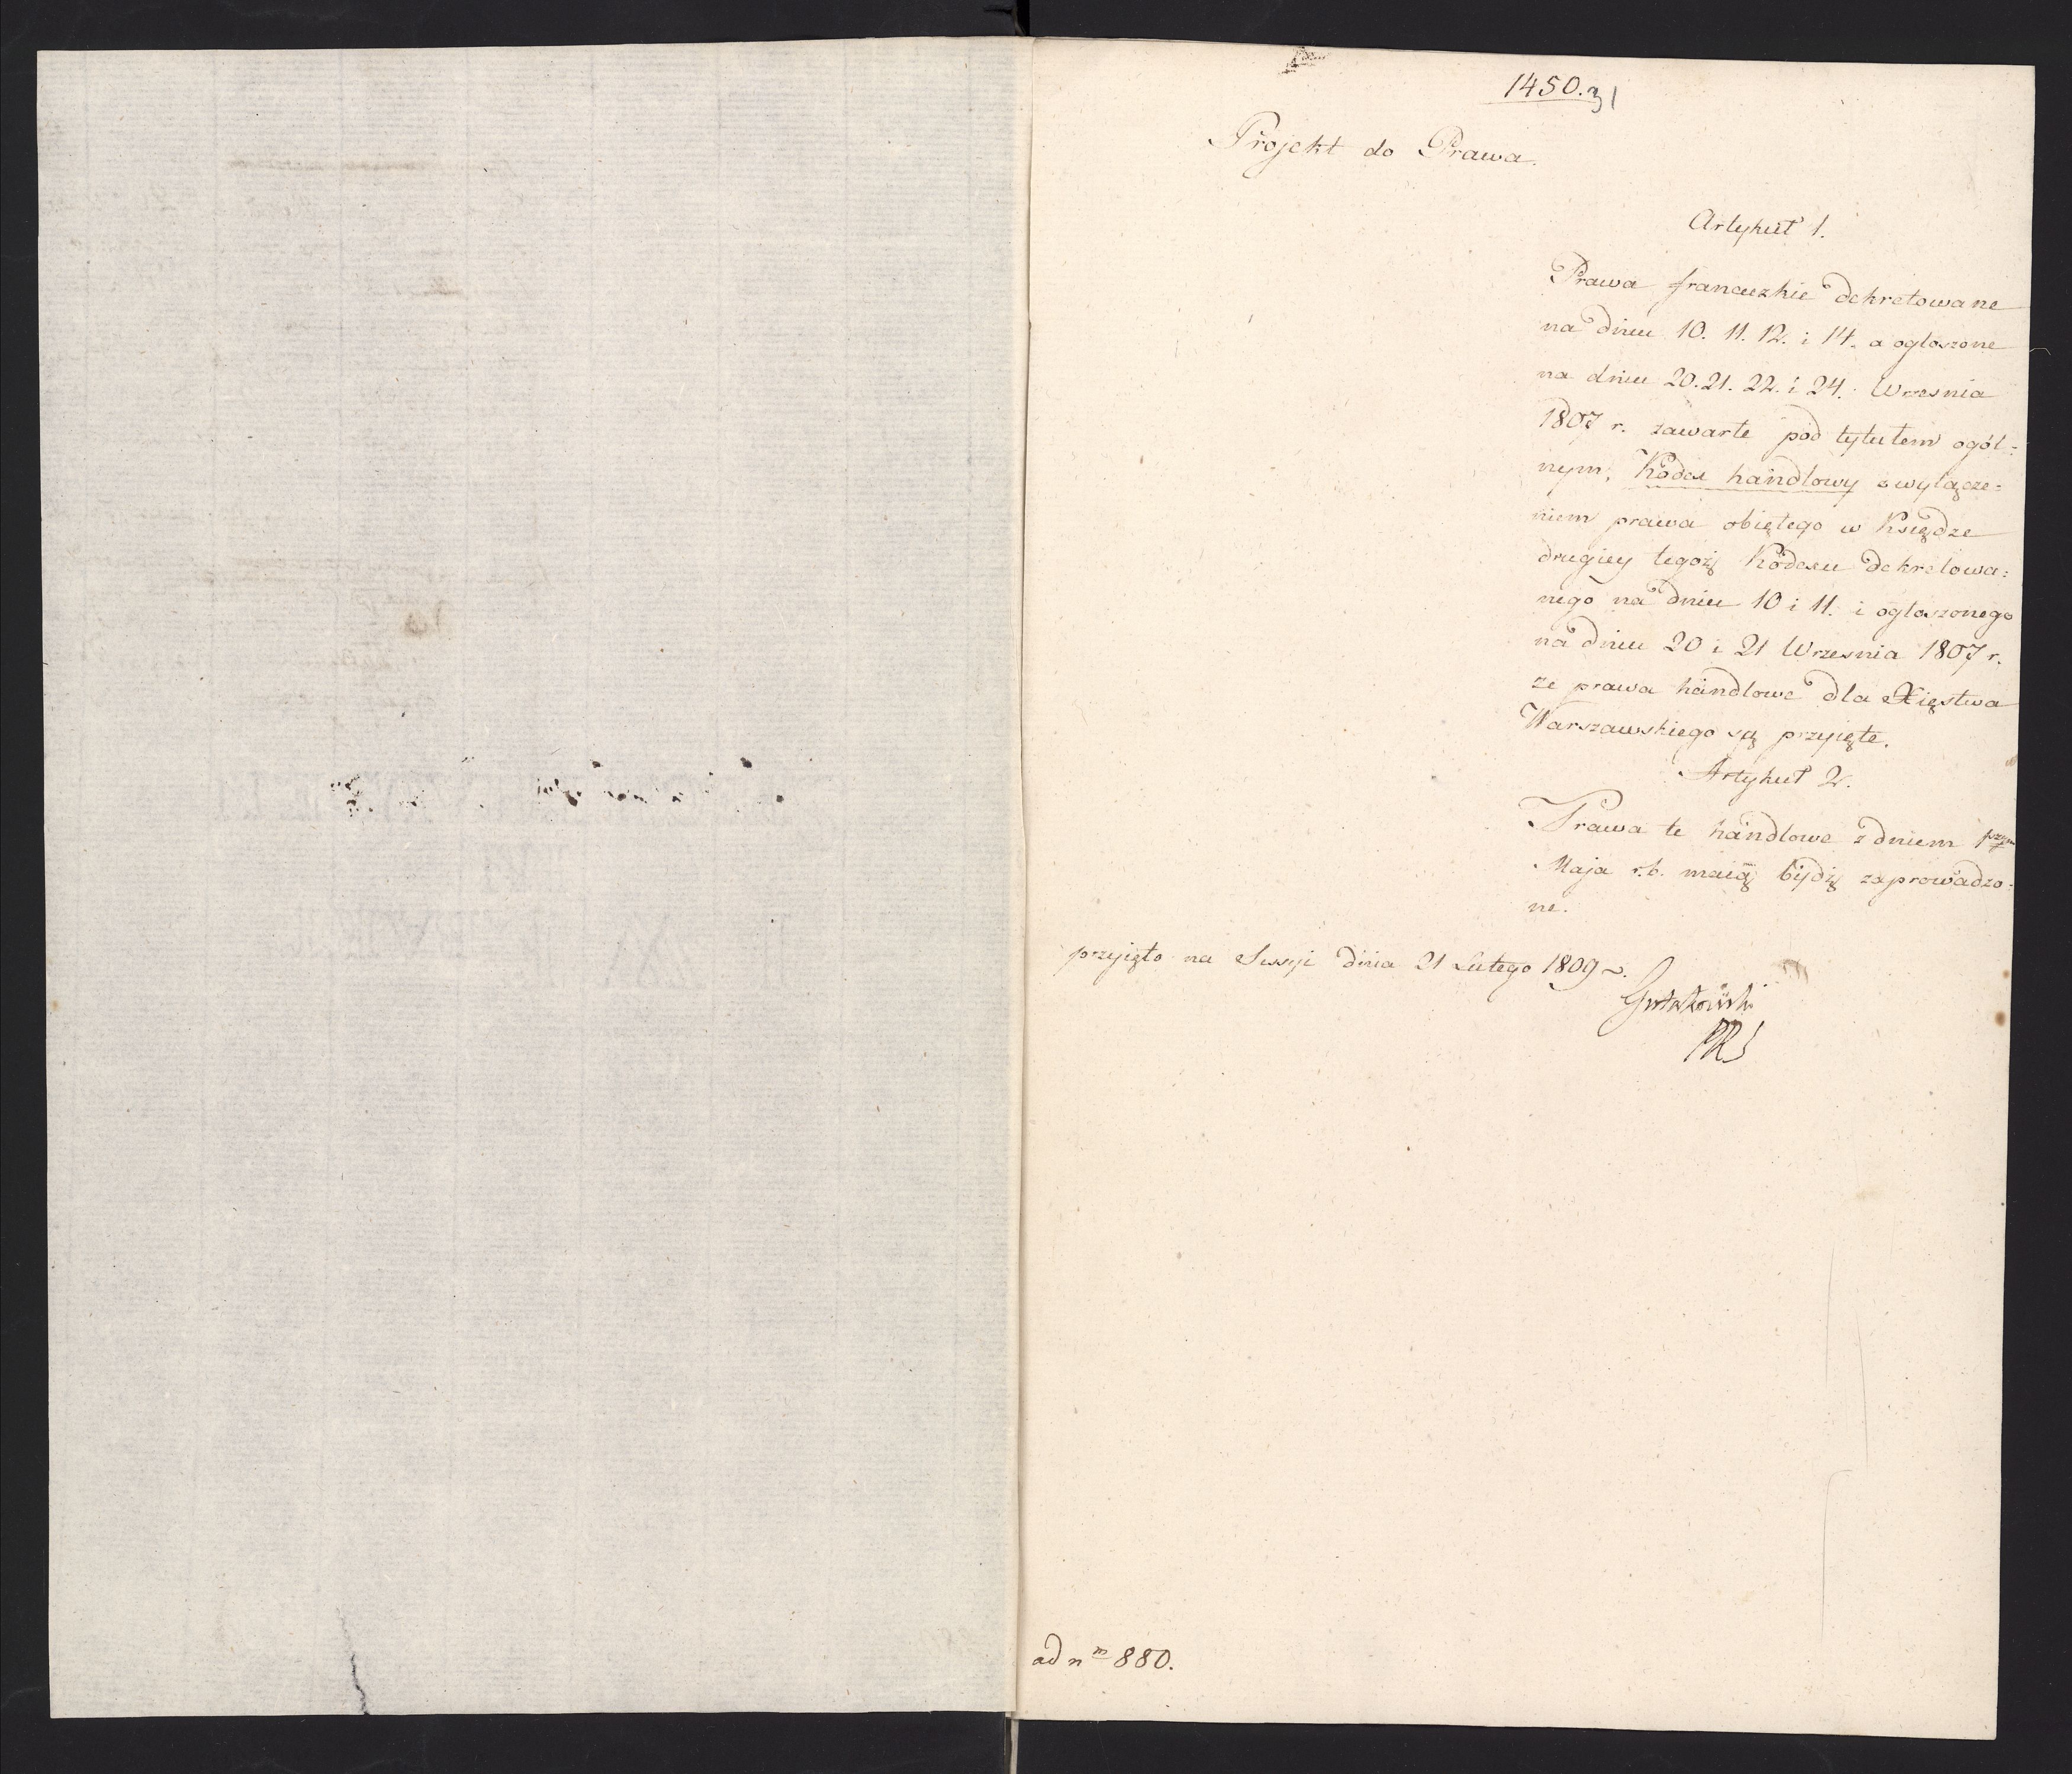 1450. 31
Projekt do Prawa.
Artykuł 1.
Prawa francuzkie dekretowane
na dniu 10. 11. 12. i 14. a ogłoszone
na dniu 20. 21. 22. i 24. Wrzesnia
1807 r. zawarte pod tytułem ogól=
nym, Kodex handlowy z wyłącze=
niem prawa obiętego w Księdze
drugiey tegoż Kodexu dekretowa=
nego na dniu 10 i 11. i ogłoszonego
na dniu 20 i 21 Wrzesnia 1807 r.
za prawa handlowe dla Xięstwa
Warszawskiego są przyięte.
Artykuł 2.
Prawa te handlowe z dniem 1szym
Maja r. b. maią bydź zaprowadzo=
ne.
przyięto na Sessyi dnia 21 Lutego 1809 r.
Gutakowski
PRS
ad nm 880.